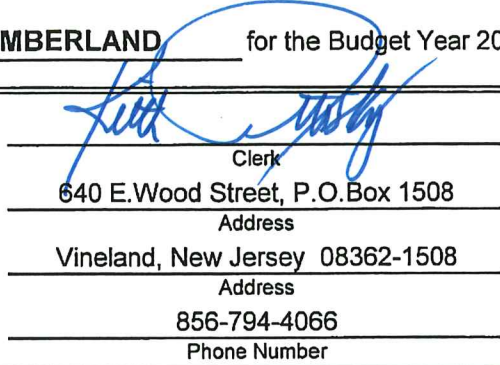 MBERLAND for the Budget Year 20
Keith
Clerk
640 E.Wood Street, P.O.Box 1508
Address
Vineland, New Jersey 08362-1508
Address
856-794-4066
Phone Number